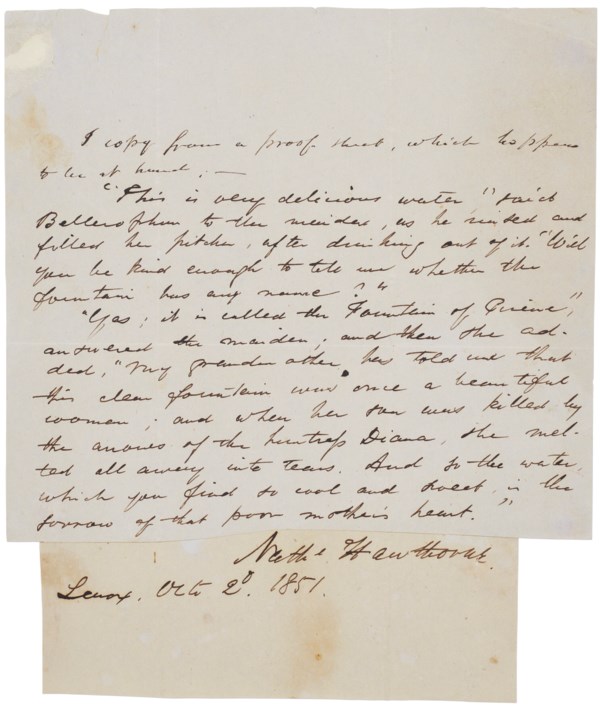 I copy from a proof-sheet, which happens
to be at hand; —
"This is very delicious water," said
Bellerophon to the maiden, as he rinsed and
filled her pitcher, after drinking out of it. "Will
you be kind enough to tell me whether the
fountain has any name?"
"Yes; it is called the Fountain of Pirene",
answered the maiden; and then she ad-
ded, "My grandmother has told me that
this clear fountain was once a beautiful
woman; and when her son was killed by
the arrows of the huntress Diana, she mel-
ted all away into tears. And so the water,
which you find so cool and sweet, is the
sorrow of that poor mother's heart."
Nathl. Hawthorne.
Lenox, Octr 2d. 1851.